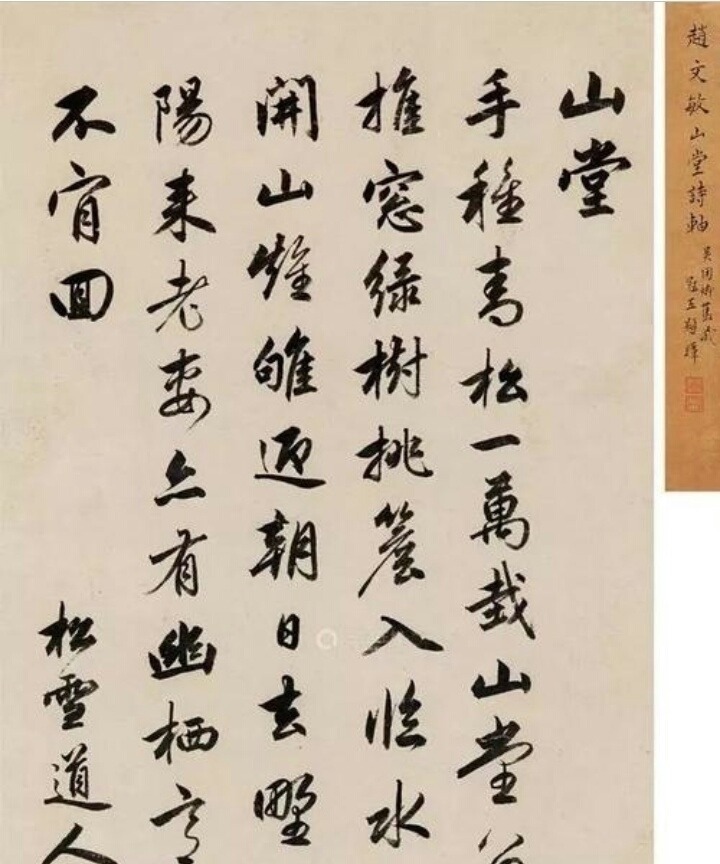 山堂
手種青松一萬栽山堂
推窓緑樹排簷入臨水
開山雉雊迎朝日去野
陽来老妻亦有幽栖
不肯囬
松雪道人
趙文敏山堂詩軸
吳用卿舊藏